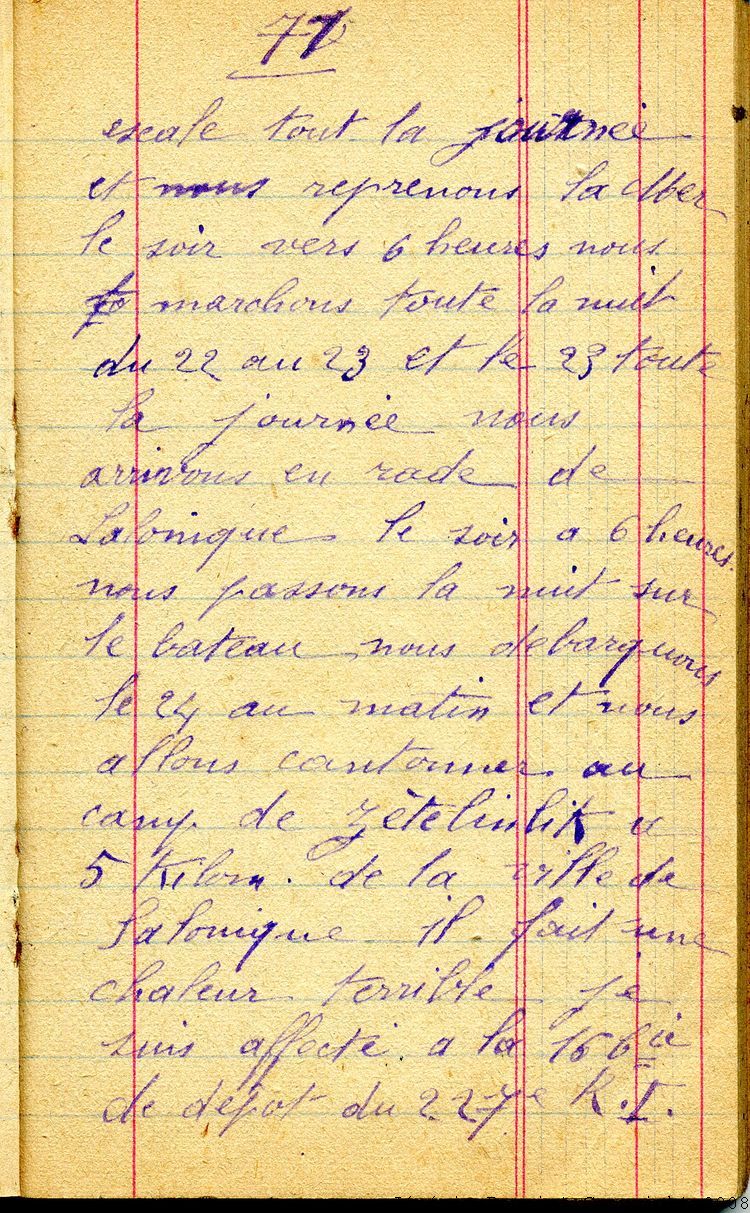 71
escale tout la journée
et nous reprenons la Mer
le soir vers 6 heures nous
marchons toute la nuit
du 22 au 23 et le 23 toute
la journée nous
arrivons en rade de
Salonique le soir a 6 heures.
nous passons la nuit sur
le bateau nous debarquons
le 24 au matin et nous
allons cantonner au
camp de Zètelinlik a
5 Kilom. de la ville de
Salonique il fait une
chaleur terrible je
suis affecté a la 16 Cie
de depot du 227e R.I.